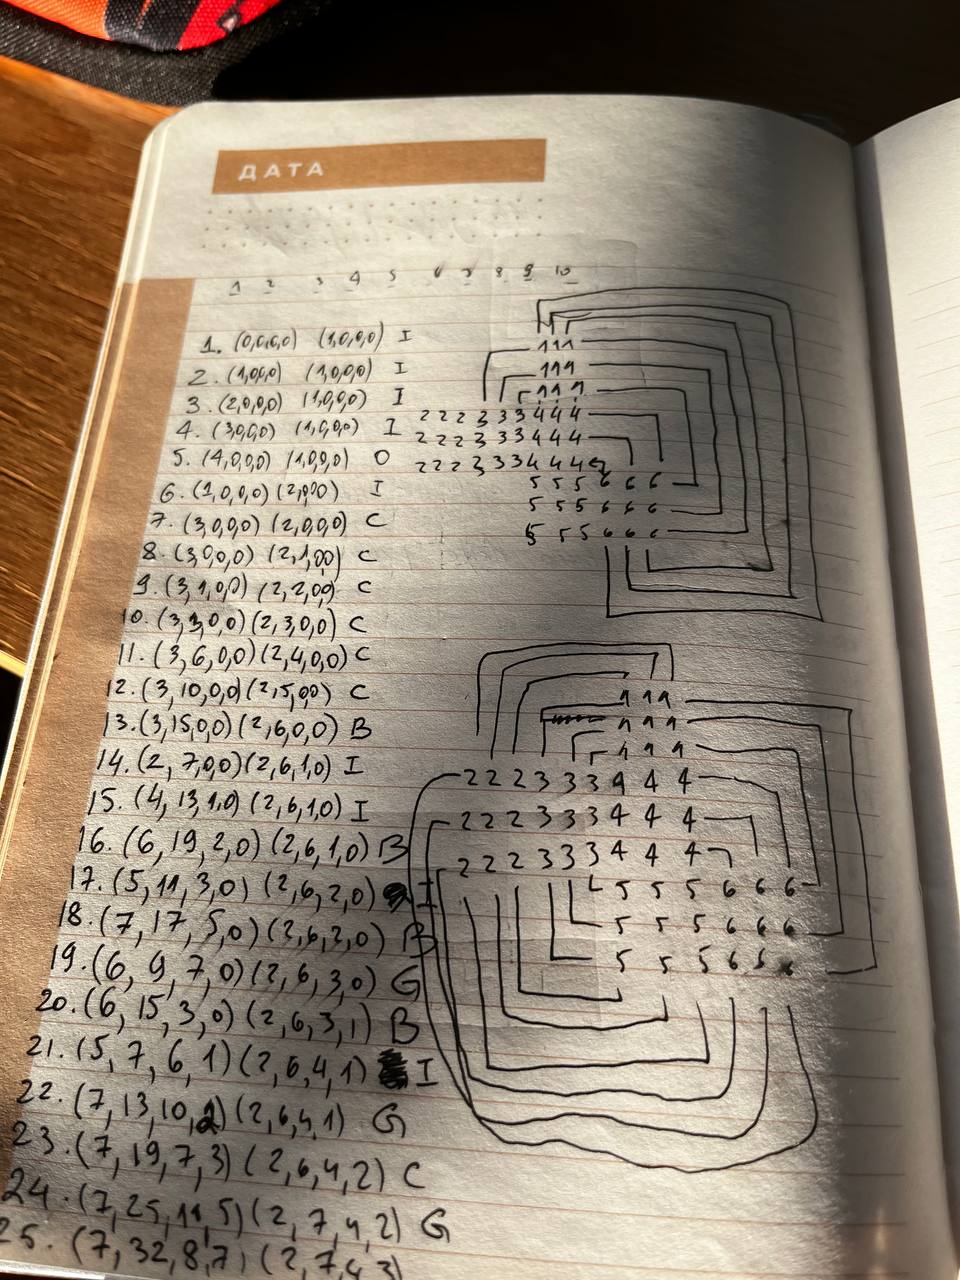 ДАТА
1 2 3 4 5 6 7 8 9 10
1. (0,0,0,0) (1,0,0,0) I
2. (1,0,0,0) (1,0,0,0) I
3. (2,0,0,0) (1,0,0,0) I
4. (3,0,0,0) (1,0,0,0) I
5. (4,0,0,0) (1,0,0,0) O
6. (1,0,0,0) (2,0,0,0) I
7. (3,0,0,0) (2,0,0,0) C
8. (3,0,0,0) (2,1,0,0) C
9. (3,1,0,0) (2,2,0,0) C
10. (3,3,0,0) (2,3,0,0) C
11. (3,6,0,0) (2,4,0,0) C
12. (3,10,0,0) (2,5,0,0) C
13. (3,15,0,0) (2,6,0,0) B
14. (2,7,0,0) (2,6,1,0) I
15. (4,13,1,0) (2,6,1,0) I
16. (6,19,2,0) (2,6,1,0) B
17. (5,11,3,0) (2,6,2,0) I
18. (7,17,5,0) (2,6,2,0) B
19. (6,9,7,0) (2,6,3,0) G
20. (6,15,3,0) (2,6,3,1) B
21. (5,7,6,1) (2,6,4,1) I
22. (7,13,10,2) (2,6,4,1) G
23. (7,19,7,3) (2,6,4,2) C
24. (7,25,11,5) (2,7,4,2) G
25. (7,32,8,7) (2,7,4,3)
1 1 1
1 1 1
1 1 1
2 2 2 3 3 3 4 4 4
2 2 2 3 3 3 4 4 4
2 2 2 3 3 4 4 4
5 5 5 6 6 6
5 5 5 6 6 6
5 5 5 6 6 6
1 1 1
1 1 1
1 1 1
2 2 2 3 3 3 4 4 4
2 2 2 3 3 3 4 4 4
2 2 2 3 3 3 4 4 4
5 5 5 6 6 6
5 5 5 6 6 6
5 5 5 6